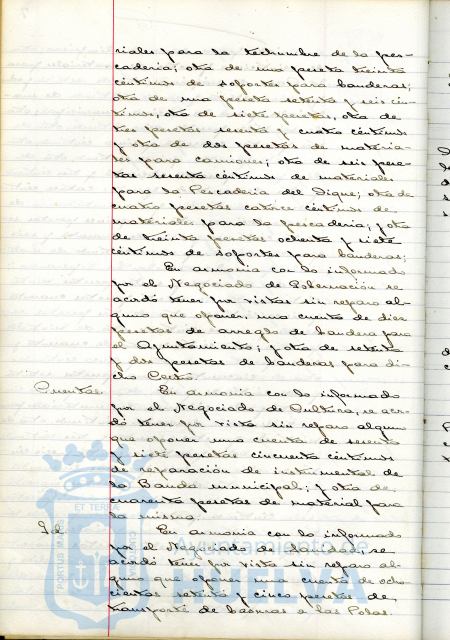 riales para la techumbre de la pes-
caderia; otra de una peseta treinta
céntimos de soportes para banderas;
otra de una peseta setenta y seis cén-
timos, otra de siete pesetas, otra de
tres pesetas sesenta y cuatro céntimos
y otra de dos pesetas de materia-
les para camiones; otra de seis pese-
tas sesenta céntimos de materiales
para la Pescaderia del Dique; otra de
cuatro pesetas catorce céntimos de
materiales para la pescaderia; y otra
de treinta pesetas ochenta y siete
céntimos de soportes para banderas;
En armonia con lo informado
por el Negociado de Gobernación se
acordó tener por vistas sin reparo al-
guno que oponer, una cuenta de diez
pesetas de arreglo de bandera para
el Ayuntamiento; y otra de setenta
y dos pesetas de banderas para di-
cho Centro.
Cuentas. En armonia con lo informado
por el Negociado de Cultura, se acor-
dó tener por vista sin reparo alguno
que oponer una cuenta de sesenta
y siete pesetas cincuenta céntimos
de reparación de instrumental de
la Banda municipal; y otra de
cuarenta pesetas de material para
la misma.
Id. En armonia con lo informado
por el Negociado de Sanidad se
acordó tener por vista sin reparo al-
guno que oponer una cuenta de ocho-
cientas setenta y cinco pesetas de
transporte de basuras a las Polas.
Ayuntamiento de
HUELVA
PORTUS MARIS
ET TERRAE
CUSTODIA